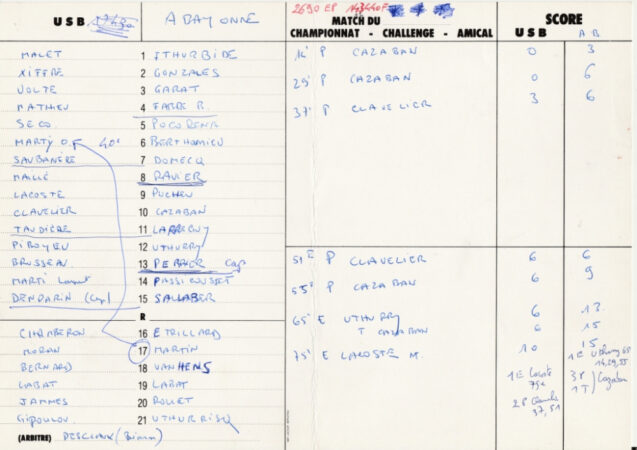 U S B A BAYONNE
MALET 1 ITHURBIDE
XIFFRE 2 GONZALES
VOLTE 3 GARAT
MATHIEU 4 FABRE R.
SECO 5 POCORENA
MARTY 40' 6 BERTHOMIEU
SAUBANERE 7 DOMECQ
MAILLE 8 RAVIER
LACOSTE 9 PUCHEU
CLAVELIER 10 CAZABAN
TAUDIERE 11
PIROYEU 12 UTHURRY
BRUSSEAU 13 Cap
MARTI 14
DENDARIN (Cap) 15 SALLABER
R
CHAMBERON 16 ETRILLARD
MORAN 17 MARTIN
BERNARD 18 VANHENS
LABAT 19 LABAT
JAMMES 20
GIPOULOU 21
(ARBITRE) DESCLAUX
2690 EP
MATCH DU SCORE
CHAMPIONNAT - CHALLENGE - AMICAL U S B A B
14' P CAZABAN 0 3
29' P CAZABAN 0 6
37' P CLAVELIER 3 6
51' P CLAVELIER 6 6
55' P CAZABAN 6 9
65' E UTHURRY 6 13
T CAZABAN 6 15
75' E LACOSTE M. 10 15
1E Lacoste
75e
37, 51
1E Uthurry 65
14, 29, 55
3P
1T / Cazaban